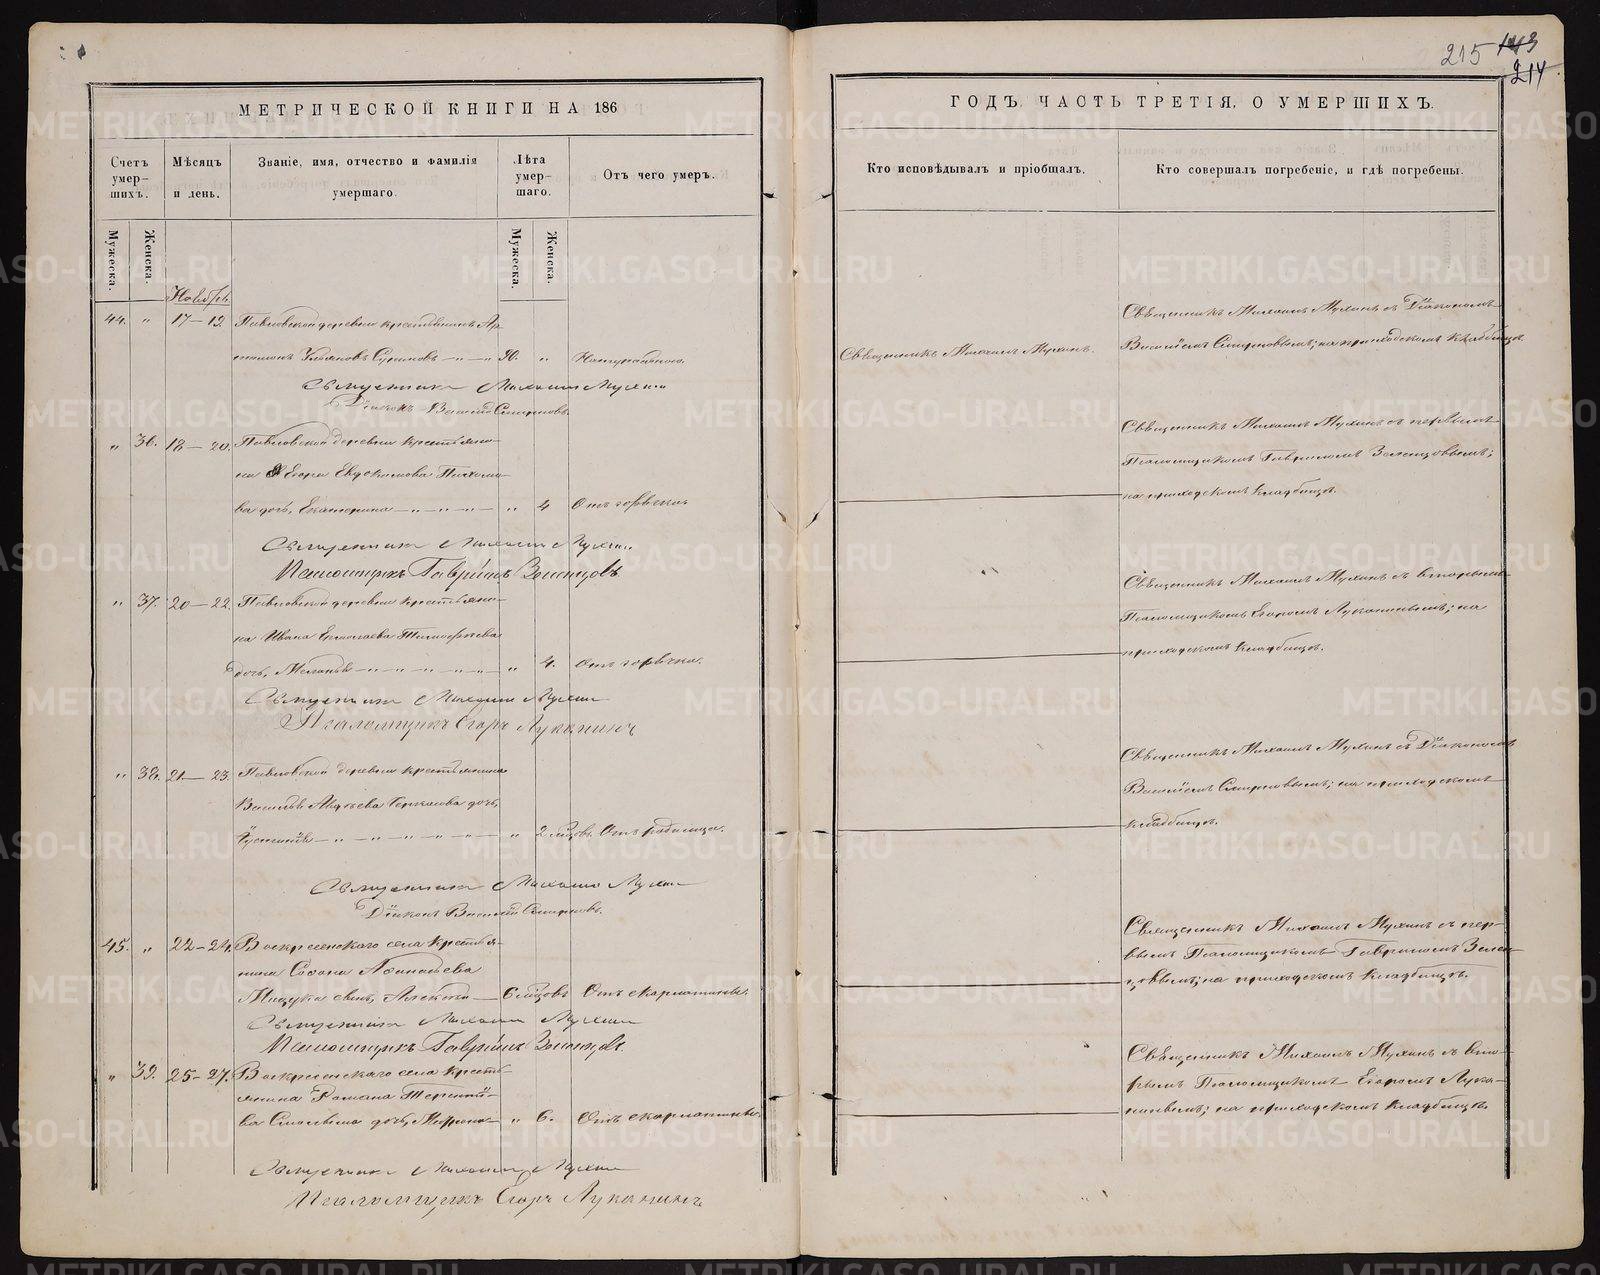 215 143
214
МЕТРИЧЕСКОЙ КНИГИ НА 186
Счетъ умер- шихъ.
Мѣсяцъ и день.
Званіе, имя, отчество и фамилія умершаго.
Лѣта умер- шаго.
Отъ чего умеръ.
Мужеска.
Женска.
Мужеска.
Женска.
Ноябрь
44. " 17–19. Павловской деревни крестьянинъ Ар-
Ульяновъ — " — " 90. "
Священникъ Михаилъ Мухинъ
Діаконъ Василій Смирновъ.
" 36. 18–20. Павловской деревни крестьяни-
на Егора Евдокимова
ва дочь, Екатерина — " — " — " — " 4 Отъ горячки
Священникъ Михаилъ Мухинъ
Псаломщикъ Гавріилъ Зеленцовъ
" 37. 20–22. Павловской деревни крестьяни-
на Ивана Ермолаева Тимофѣева
дочь, — " — " — " — " — " 4. Отъ горячки.
Священникъ Михаилъ Мухинъ
Псаломщикъ Егоръ Луканинъ
" 38. 21–23. Павловской деревни крестьянина
Василья дочь,
— " — " — " — " — " 2 мѣсѧцовъ. Отъ родимца.
Священникъ Михаилъ Мухинъ
Діаконъ Василій Смирновъ.
45. " 22–24. Воскресенскаго села крестья-
нина
сынъ, Алексѣй — 6 мѣсѧцовъ Отъ скарлатины.
Священникъ Михаилъ Мухинъ
Псаломщикъ Гавріилъ Зеленцовъ.
" 39. 25–27. Воскресенскаго села кресть-
янина Романа Терентье-
ва дочь, — " 6. Отъ скарлатины.
Священникъ Михаилъ Мухинъ
Псаломщикъ Егоръ Луканинъ
ГОДЪ. ЧАСТЬ ТРЕТІЯ, О УМЕРШИХЪ.
Кто исповѣдывалъ и пріобщалъ.
Кто совершалъ погребеніе, и гдѣ погребены.
Священникъ Михаилъ Мухинъ.
Священникъ Михаилъ Мухинъ съ Діакономъ
Василіемъ Смирновымъ; на приходскомъ кладбищѣ
Священникъ Михаилъ Мухинъ съ первымъ
Псаломщикомъ Гавріиломъ Зеленцовымъ;
на приходскомъ кладбищѣ.
Священникъ Михаилъ Мухинъ съ вторымъ
Псаломщикомъ Егоромъ Луканинымъ; на
приходскомъ кладбищѣ.
Священникъ Михаилъ Мухинъ съ Діакономъ
Василіемъ Смирновымъ; на приходскомъ
кладбищѣ.
Священникъ Михаилъ Мухинъ съ пер-
вымъ Псаломщикомъ Гавріиломъ Зелен-
цовымъ; на приходскомъ кладбищѣ.
Священникъ Михаилъ Мухинъ съ вто-
рымъ Псаломщикомъ Егоромъ Лука-
нинымъ; на приходскомъ кладбищѣ.
METRIKI.GASO-URAL.RU